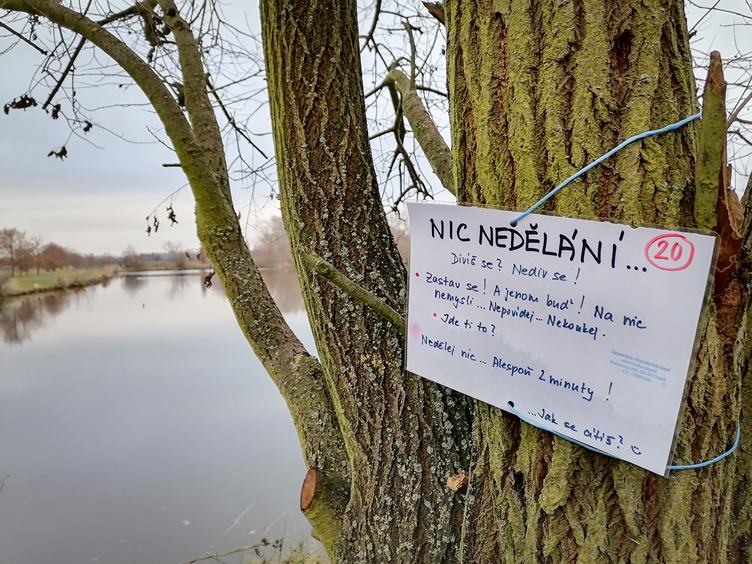 NIC NEDĚLÁNÍ... 20
Divíš se? Nediv se!
• Zastav se! A jenom buď! Na nic
nemysli... Nepovídej... Nekoukej.
• Jde ti to?
Nedělej nic... Alespoň 2 minuty!
...Jak se cítíš?